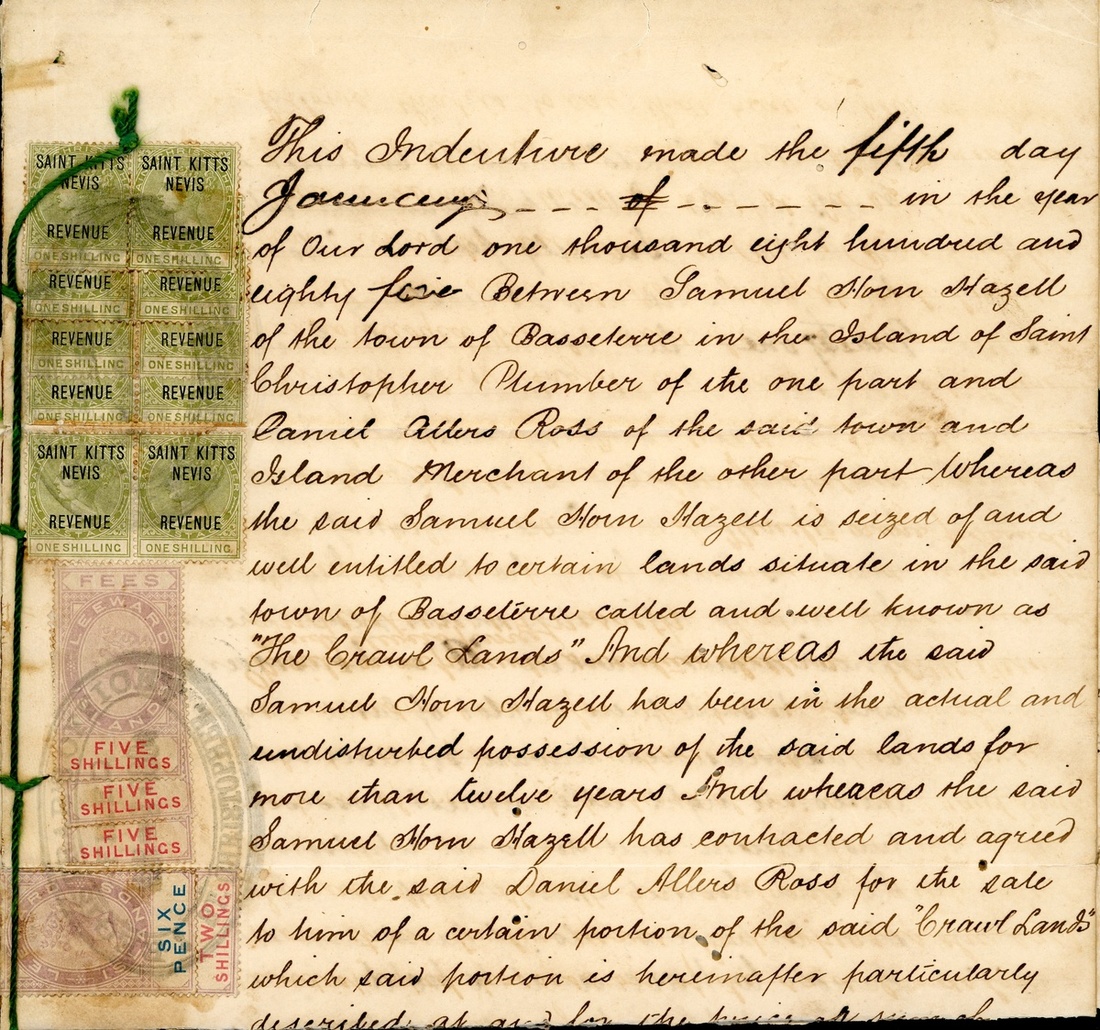 SAINT KITTS NEVIS SAINT KITTS NEVIS
REVENUE REVENUE
ONE SHILLING ONE SHILLING
REVENUE REVENUE
ONE SHILLING ONE SHILLING
REVENUE REVENUE
ONE SHILLING ONE SHILLING
REVENUE REVENUE
ONE SHILLING ONE SHILLING
SAINT KITTS NEVIS SAINT KITTS NEVIS
REVENUE REVENUE
ONE SHILLING ONE SHILLING
FEES
LEEWARD
ISLANDS
FIVE SHILLINGS
FIVE SHILLINGS
FIVE SHILLINGS
SIX PENCE
TWO SHILLINGS
This Indenture made the fifth day
January of in the year
of Our Lord one thousand eight hundred and
eighty five Between Samuel Horn Hazell
of the town of Basseterre in the Island of Saint
Christopher Plumber of the one part and
Daniel Allers Ross of the said town and
Island Merchant of the other part Whereas
the said Samuel Horn Hazell is seized of and
well entitled to certain lands situate in the said
town of Basseterre called and well known as
"The Crawl Lands" And whereas the said
Samuel Horn Hazell has been in the actual and
undisturbed possession of the said lands for
more than twelve years And whereas the said
Samuel Horn Hazell has contracted and agreed
with the said Daniel Allers Ross for the sale
to him of a certain portion of the said "Crawl Lands"
which said portion is hereinafter particularly
described at and for the price